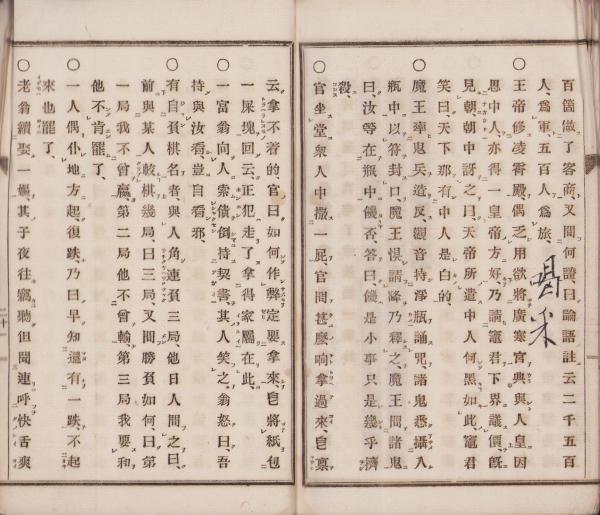 百箇做了客商、又問何證曰論語註云二千五百
人、爲軍五百人爲旅、
〇 王帝修凌霄殿偶乏用欲將廣寒宮典與人皇因
思中人亦得一皇帝方好、乃請竈君下界議價、既
見朝、朝中訝之曰天帝所遣中人何黑如此竈君
笑曰、天下那有中人是白的、
〇 魔王率鬼兵造反觀音持淨瓶誦呪諸鬼悉攝入
瓶中以符封口魔王恨請降乃釋之、魔王問諸鬼
曰、汝等在瓶中饑否、答曰、饑是小事只是幾乎擠
殺、
〇 官坐堂、衆人中撒一屁官問甚麽响拿過來、皂稟
云拿不着的官曰如何作弊定要拿來、皂將紙包
一屎塊回云正犯走了拿得家屬在此、
〇 一富翁向人索債倒持契書其人笑之翁怒曰、吾
持與汝看、豈自看邪、
〇 有自負棋名者、與人角連負三局、他日人問之曰、
前與某人較棋幾局、曰三局又問勝負如何曰第
一局我不曾贏第二局他不曾輸第三局我要和
他不肯罷了、
〇 一人偶仆地方起、復跌乃曰早知還有一跌不起
來也罷了、
〇 老翁續娶一嫗其子夜往竊聽但聞連呼快舌爽